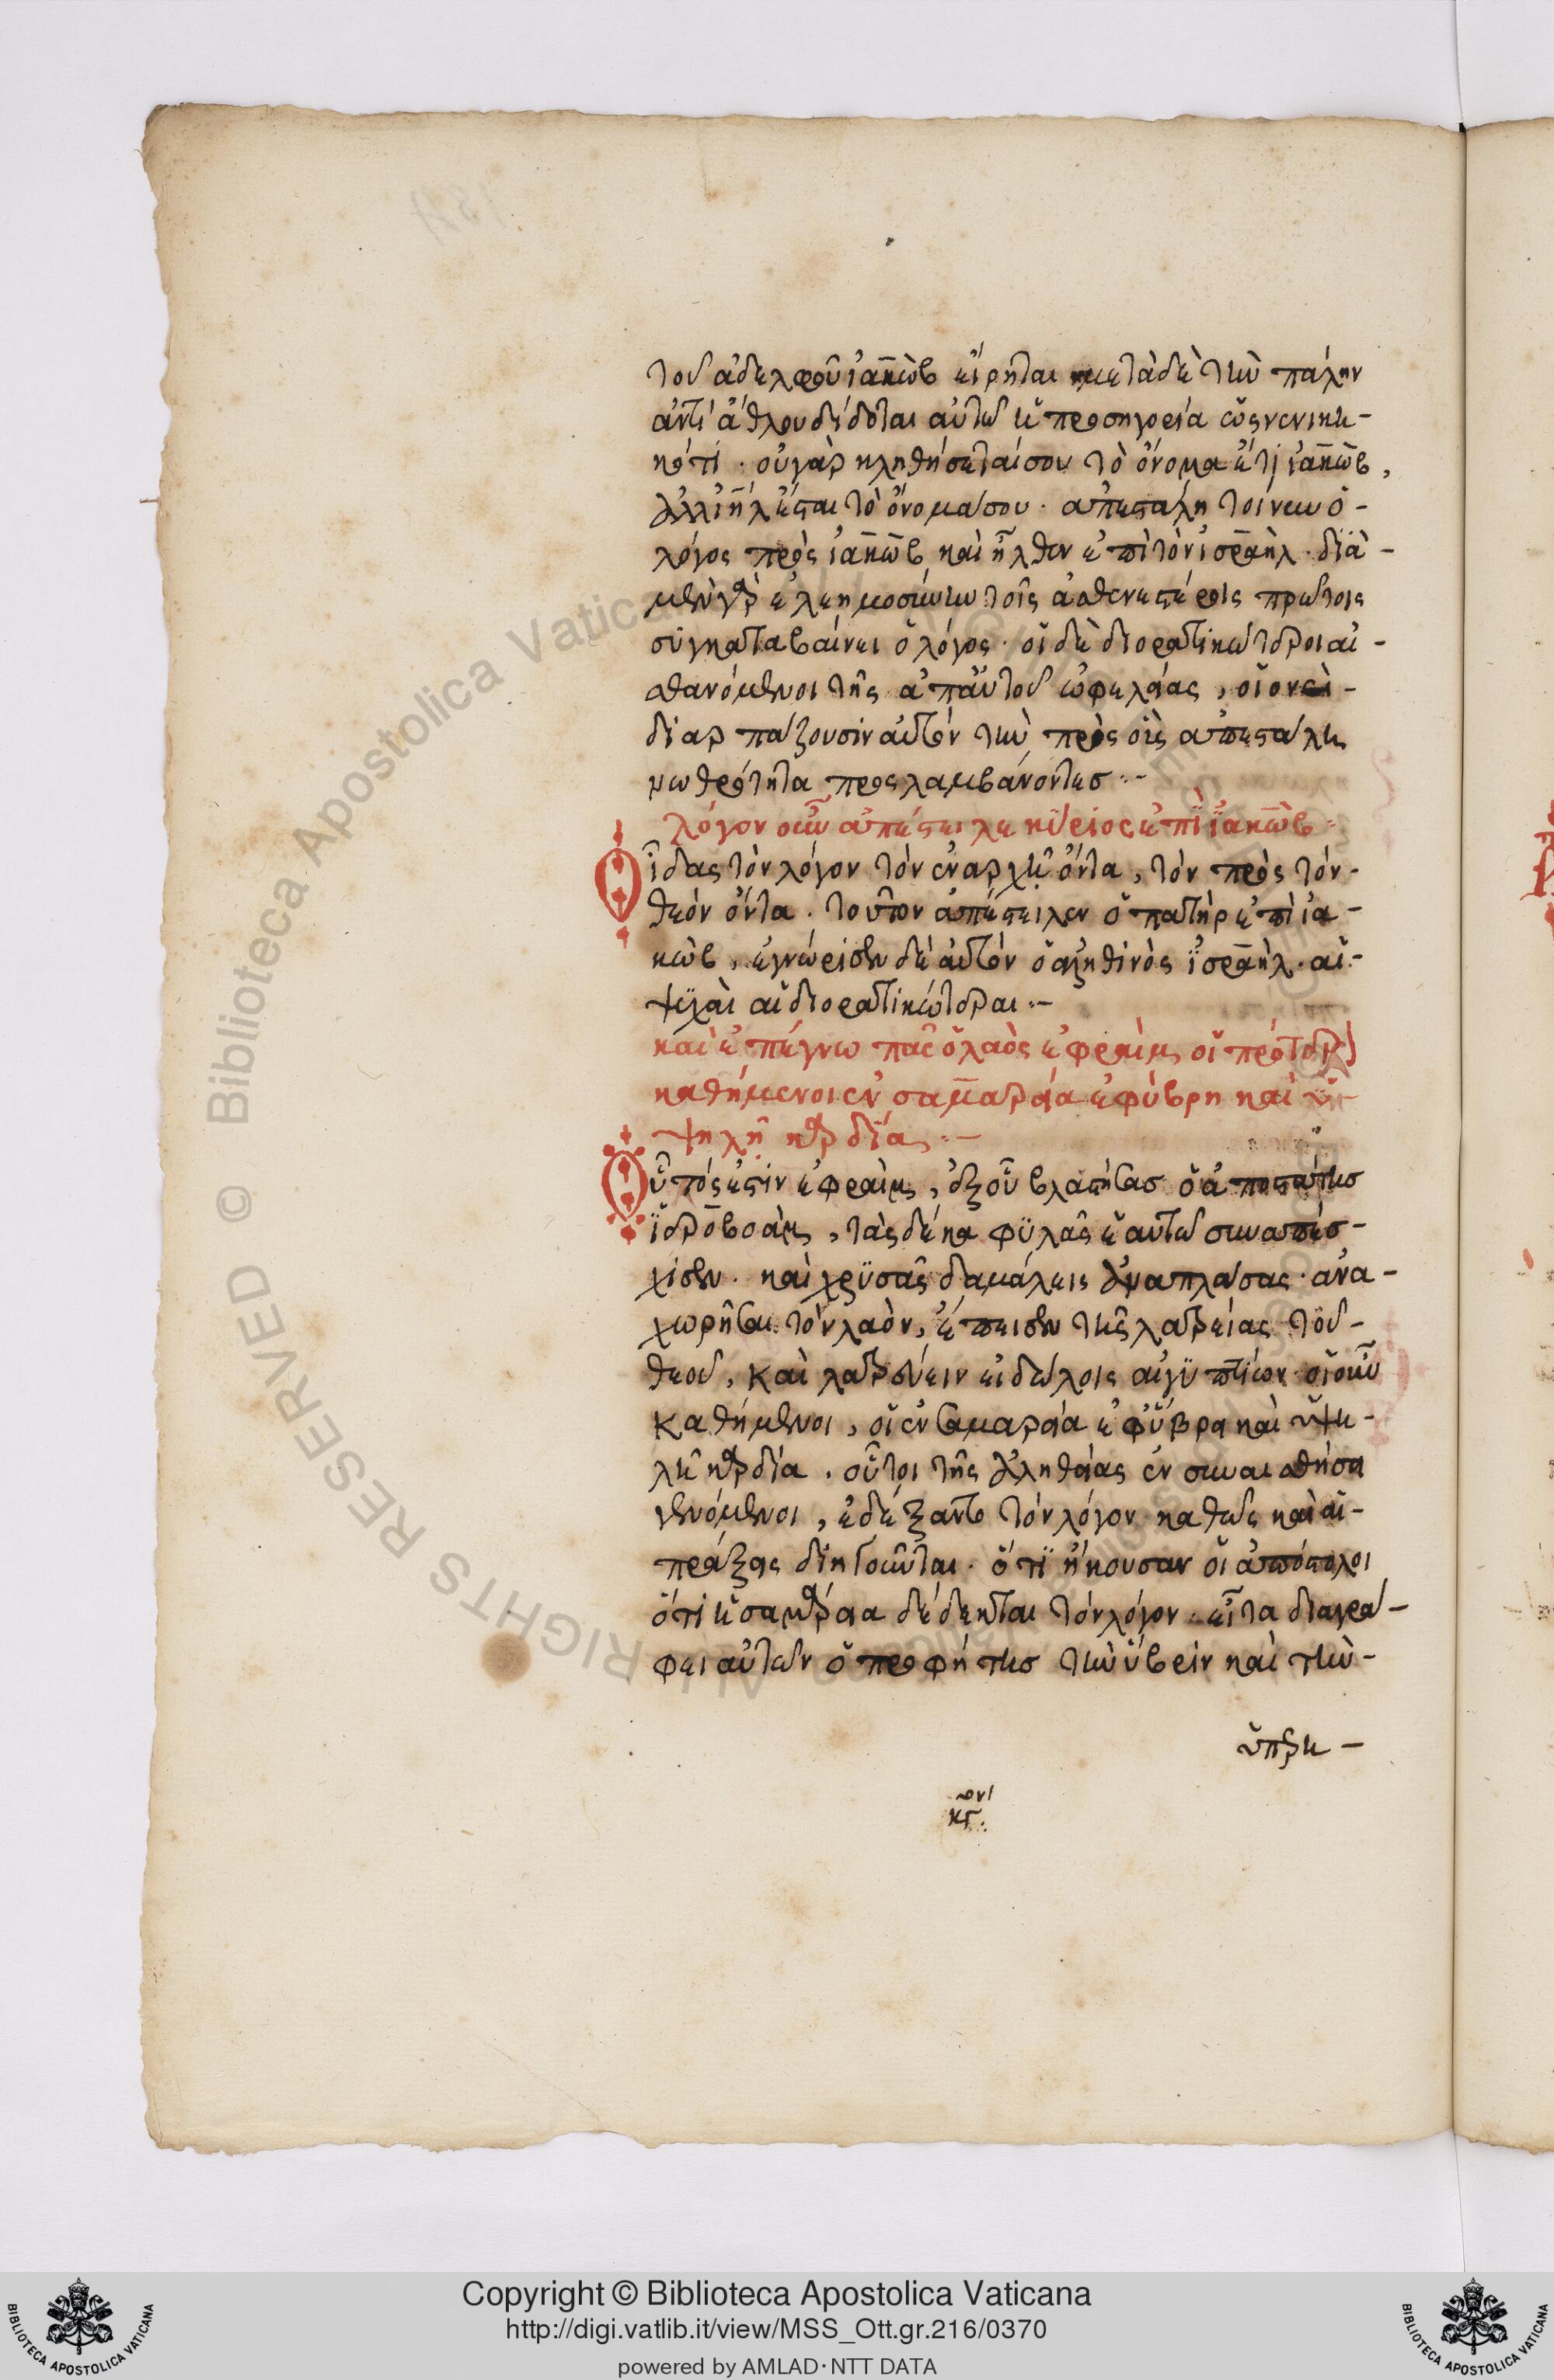 τοῦ ἀδελφοῦ ἰακὼβ εἴρηται μετὰ δὲ τὴν πάλην
ἀντὶ ἄθλου δίδοται αὐτῶ ἡ προσηγορία ὡς νενικη-
κότι · οὐ γὰρ κληθήσεται σου τὸ ὄνομα ἔτι ἰακὼβ,
ἀλλ ἰηλ ἔσται τὸ ὄνομα σου · ἀπεστάλη τοίνυν ὁ -
λόγος πρὸς ἰακὼβ, καὶ ἦλθεν ἐπὶ τὸν ἰσραὴλ · διὰ -
μὲν γὰρ ἐλεημοσύνην τοῖς ἀσθενεστέροις πρώτοις
συγκαταβαίνει ὁ λόγος · οἱ δὲ διορατικώτεροι αἰ -
σθανόμενοι τῆς ἀπ αὐτοῦ ὠφελείας, οἱονεὶ -
διαρπάζουσιν αὐτὸν τὴν πρὸς οἷς ἀπεστάλη
νωθρότητα προσλαμβάνοντες ·-
λόγον οὖν ἀπέστειλε κύριος ἐπὶ ἰακὼβ
Οἶδας τὸν λόγον τὸν ἐν ἀρχῇ ὄντα, τὸν πρὸς τόν -
θεὸν ὄντα · τοῦτον ἀπέστειλεν ὁ πατὴρ ἐπὶ ἰα -
κὼβ, ἐγνώρισεν δὲ αὐτὸν ὁ ἀληθινὸς ἰσραὴλ · αἱ -
ψυχαὶ αἱ διορατικώτεραι ·-
καὶ ἐπέγνω πᾶς ὁ λαὸς ἐφραὶμ, οἱ πρότερ
καθήμενοι ἐν σαμαρεία ἐφύβρη καὶ ὑ -
ψηλῇ καρδία ·-
Οὗτός ἐστιν ἐφραὶμ, ἐξ οὗ βλαστήσας ὁ ἀποστάτης
ἱεροβοὰμ, τὰς δέκα φυλὰς ἑαυτῶ συναπέσ -
χισεν · καὶ χρυσὰς δαμάλεις ἀναπλάσας · ἀνα -
χωρῆσαι τὸν λαὸν, ἔπεισεν τῆς λατρείας τοῦ -
θεοῦ, καὶ λατρεύειν εἰδώλοις αἰγυπτίων · οἱ οὖν
καθήμενοι, οἱ ἐν σαμαρεία ἐφύβρα καὶ ὑψη -
λῆ καρδία · οὗτοι τῆς ἀληθείας ἐν συναισθήσει
γενόμενοι, ἐδέξαντο τὸν λόγον καθὼς καὶ αἱ -
πράξεις διηγοῦνται · ὅτι ἤκουσαν οἱ ἀπόστολοι
ὅτι ἡ σαμάρεια δέδεκται τὸν λόγον · εἶτα διαγρά -
φει αὐτῶν ὁ προφήτης τὴν ὕβριν καὶ τὴν -
ὑπερη -
κγ.
Copyright © Biblioteca Apostolica Vaticana
http://digi.vatlib.it/view/MSS_Ott.gr.216/0370
powered by AMLAD·NTT DATA
© Biblioteca Apostolica Vaticana ALL RIGHTS RESERVED
BIBLIOTECA APOSTOLICA VATICANA
BIBLIOTECA APOSTOLICA VATICANA